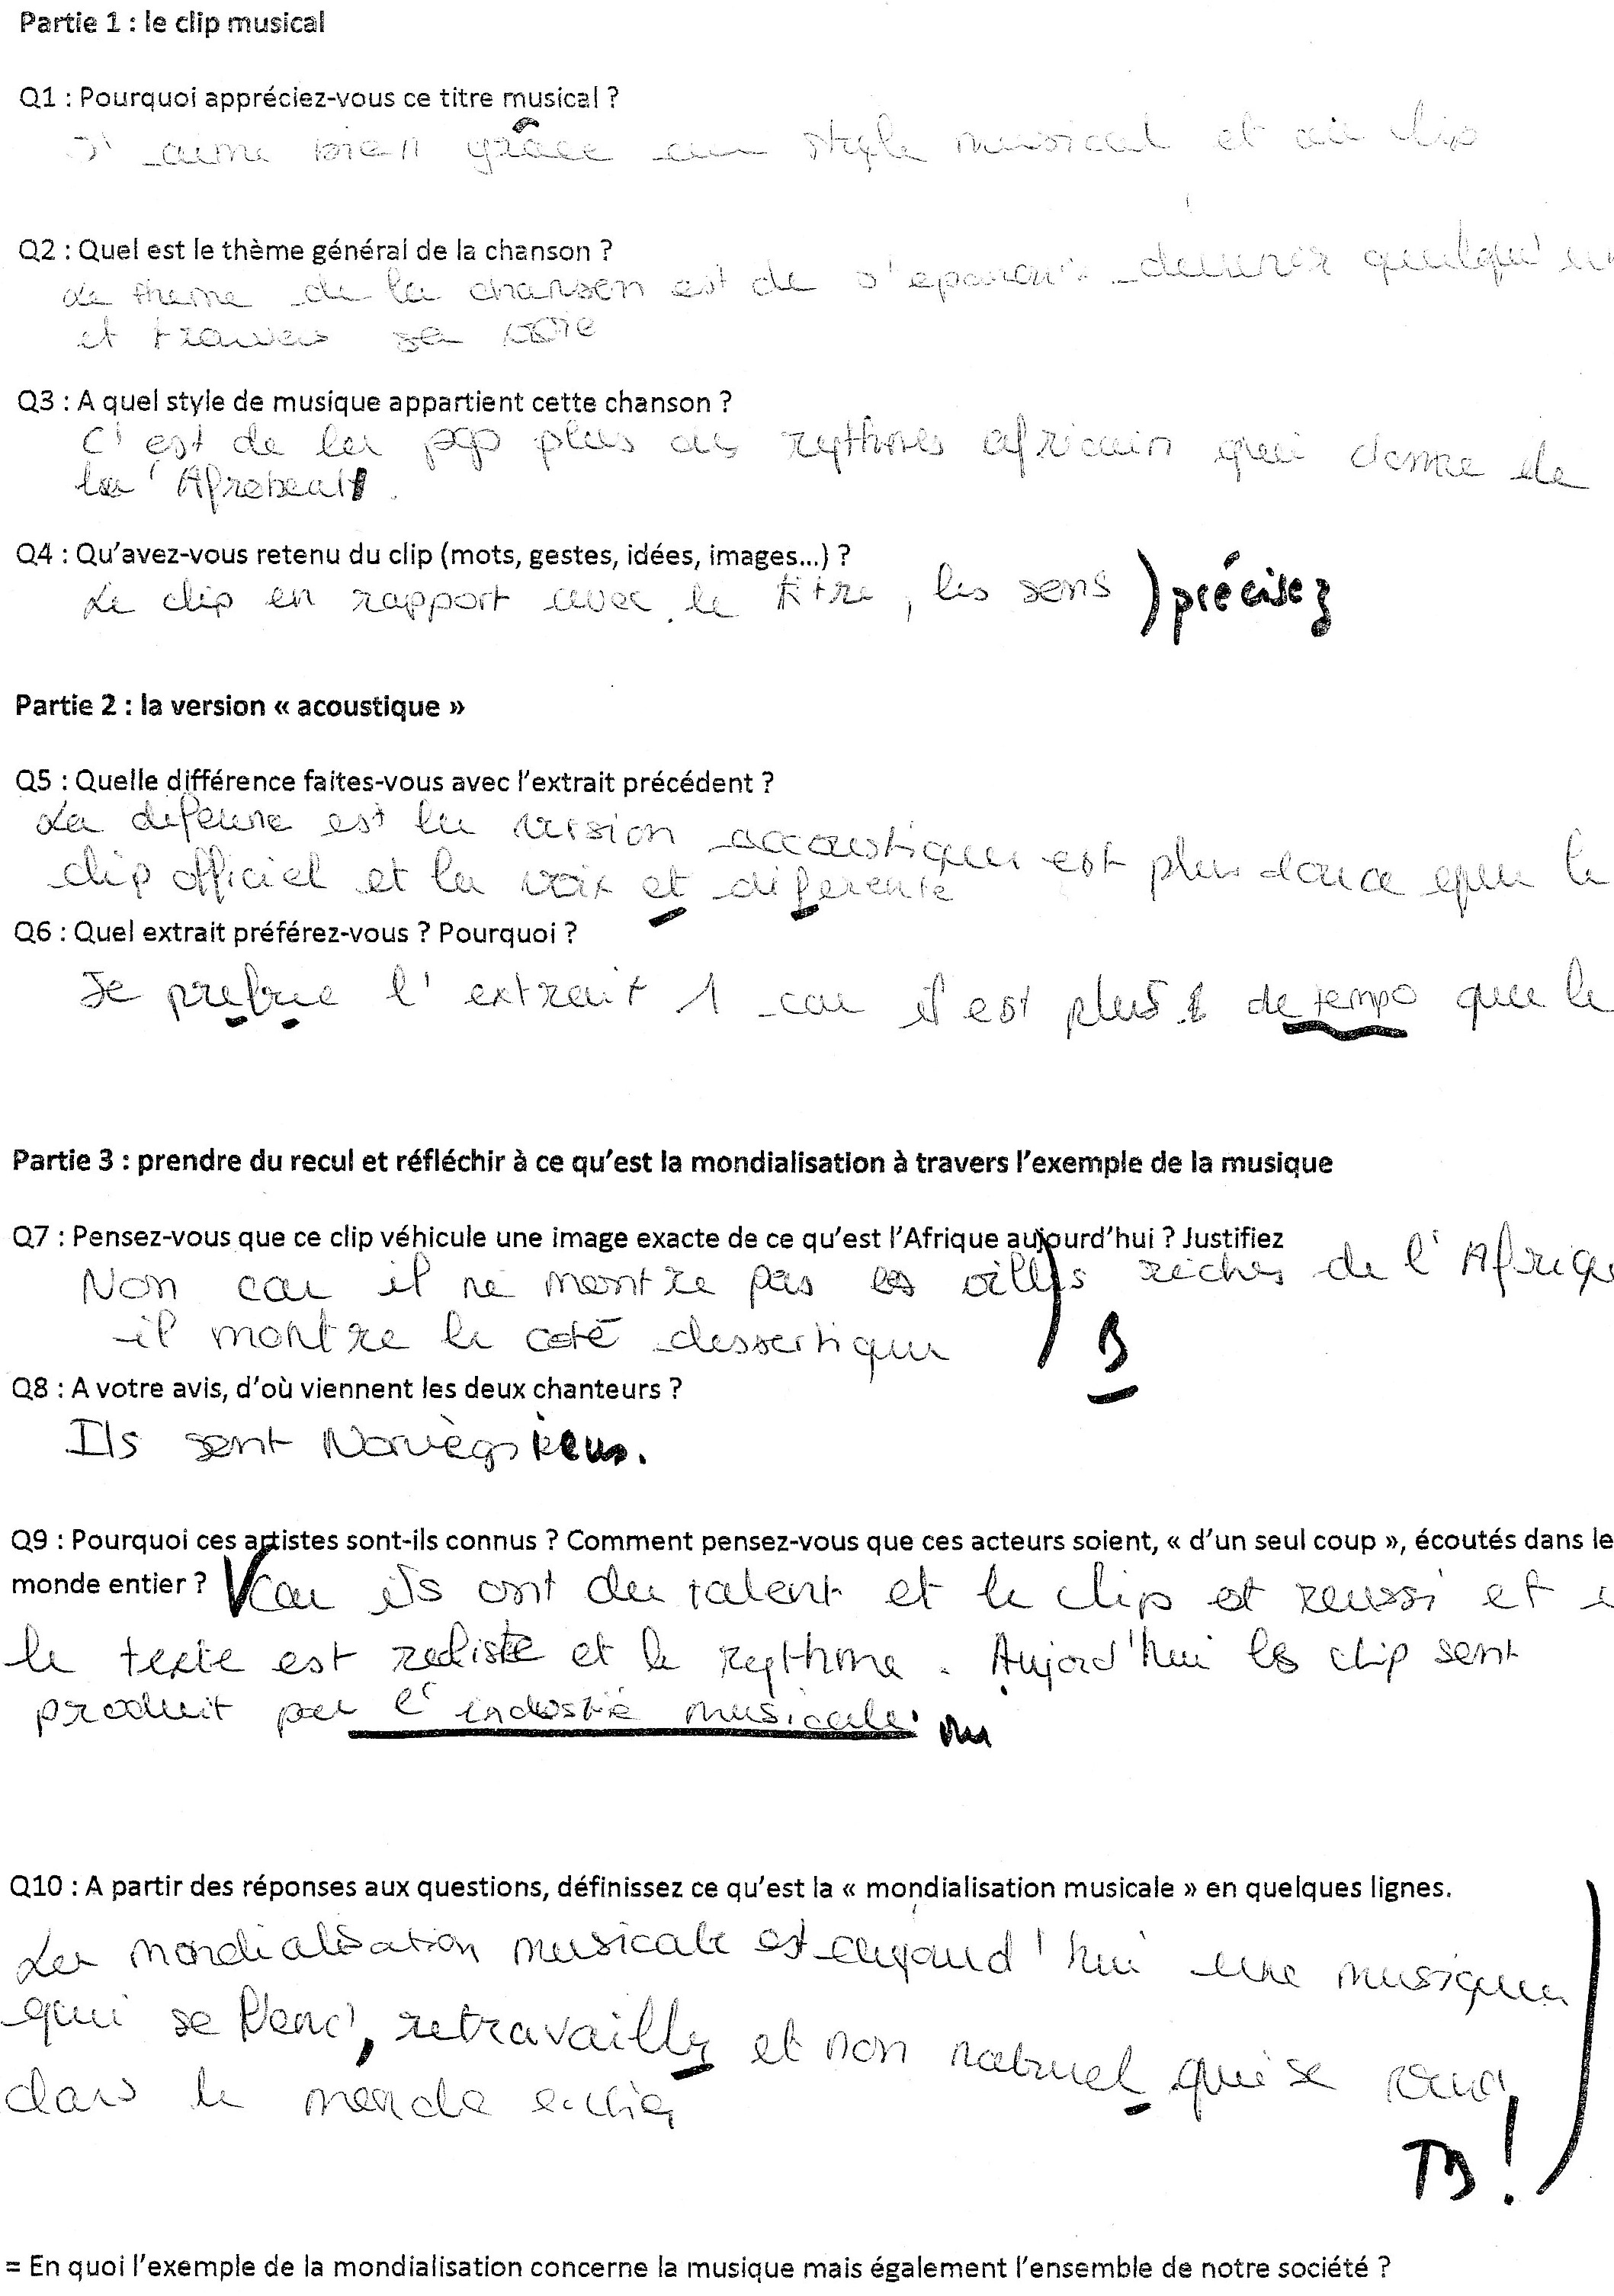 Partie 1 : le clip musical
Q1 : Pourquoi appréciez-vous ce titre musical ?
J'aime bien grâce au style musical et au clip
Q2 : Quel est le thème général de la chanson ?
Le theme de la chanson est de s'epanouir devenir quelqu'un
et trouver sa voie
Q3 : A quel style de musique appartient cette chanson ?
C'est de la pop plus des rythmes africain qui donne de
la 'Afrobeat.
Q4 : Qu'avez-vous retenu du clip (mots, gestes, idées, images...) ?
Le clip en rapport avec le titre, les sens ) précisez
Partie 2 : la version « acoustique »
Q5 : Quelle différence faites-vous avec l'extrait précédent ?
La est la version est plus douce que le
clip officiel et la voix et diferente
Q6 : Quel extrait préférez-vous ? Pourquoi ?
Je prefere l'extrait 1 car il est plus de tempo que le
Partie 3 : prendre du recul et réfléchir à ce qu'est la mondialisation à travers l'exemple de la musique
Q7 : Pensez-vous que ce clip véhicule une image exacte de ce qu'est l'Afrique aujourd'hui ? Justifiez
Non car il ne montre pas les villes riches de l'Afrique
il montre le coté dessertique B
Q8 : A votre avis, d'où viennent les deux chanteurs ?
Ils sont
Q9 : Pourquoi ces artistes sont-ils connus ? Comment pensez-vous que ces acteurs soient, « d'un seul coup », écoutés dans le
monde entier ? V Car ils ont du talent et le clip est reussi et
le texte est realiste et le rythme. Aujord'hui les clip sont
produit par l'industrie musicale. vu
Q10 : A partir des réponses aux questions, définissez ce qu'est la « mondialisation musicale » en quelques lignes.
La mondialisation musicale est une musique
qui se vend, et non naturel qui se vend
dans le monde entier
TB !
= En quoi l'exemple de la mondialisation concerne la musique mais également l'ensemble de notre société ?